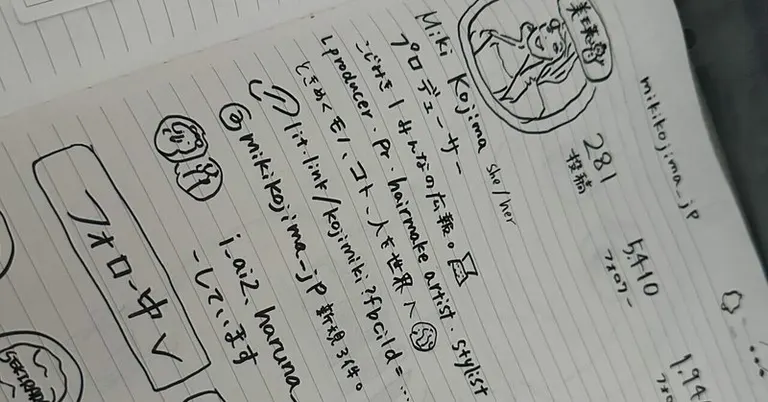 mikikojima_jp
281
投稿
5,410
フォロワー
1,94
フォロ
Miki Kojima she/her
プロデューサー
みんなの広報。
Lproducer. pr. hairmake artist. stylist
ときめくモノ、コト、人を世界へ
lit.link/kojimiki?fbclid=...
@mikikojima_jp 新規3件。
i_ai2、haruna
ーしています
フォロー中